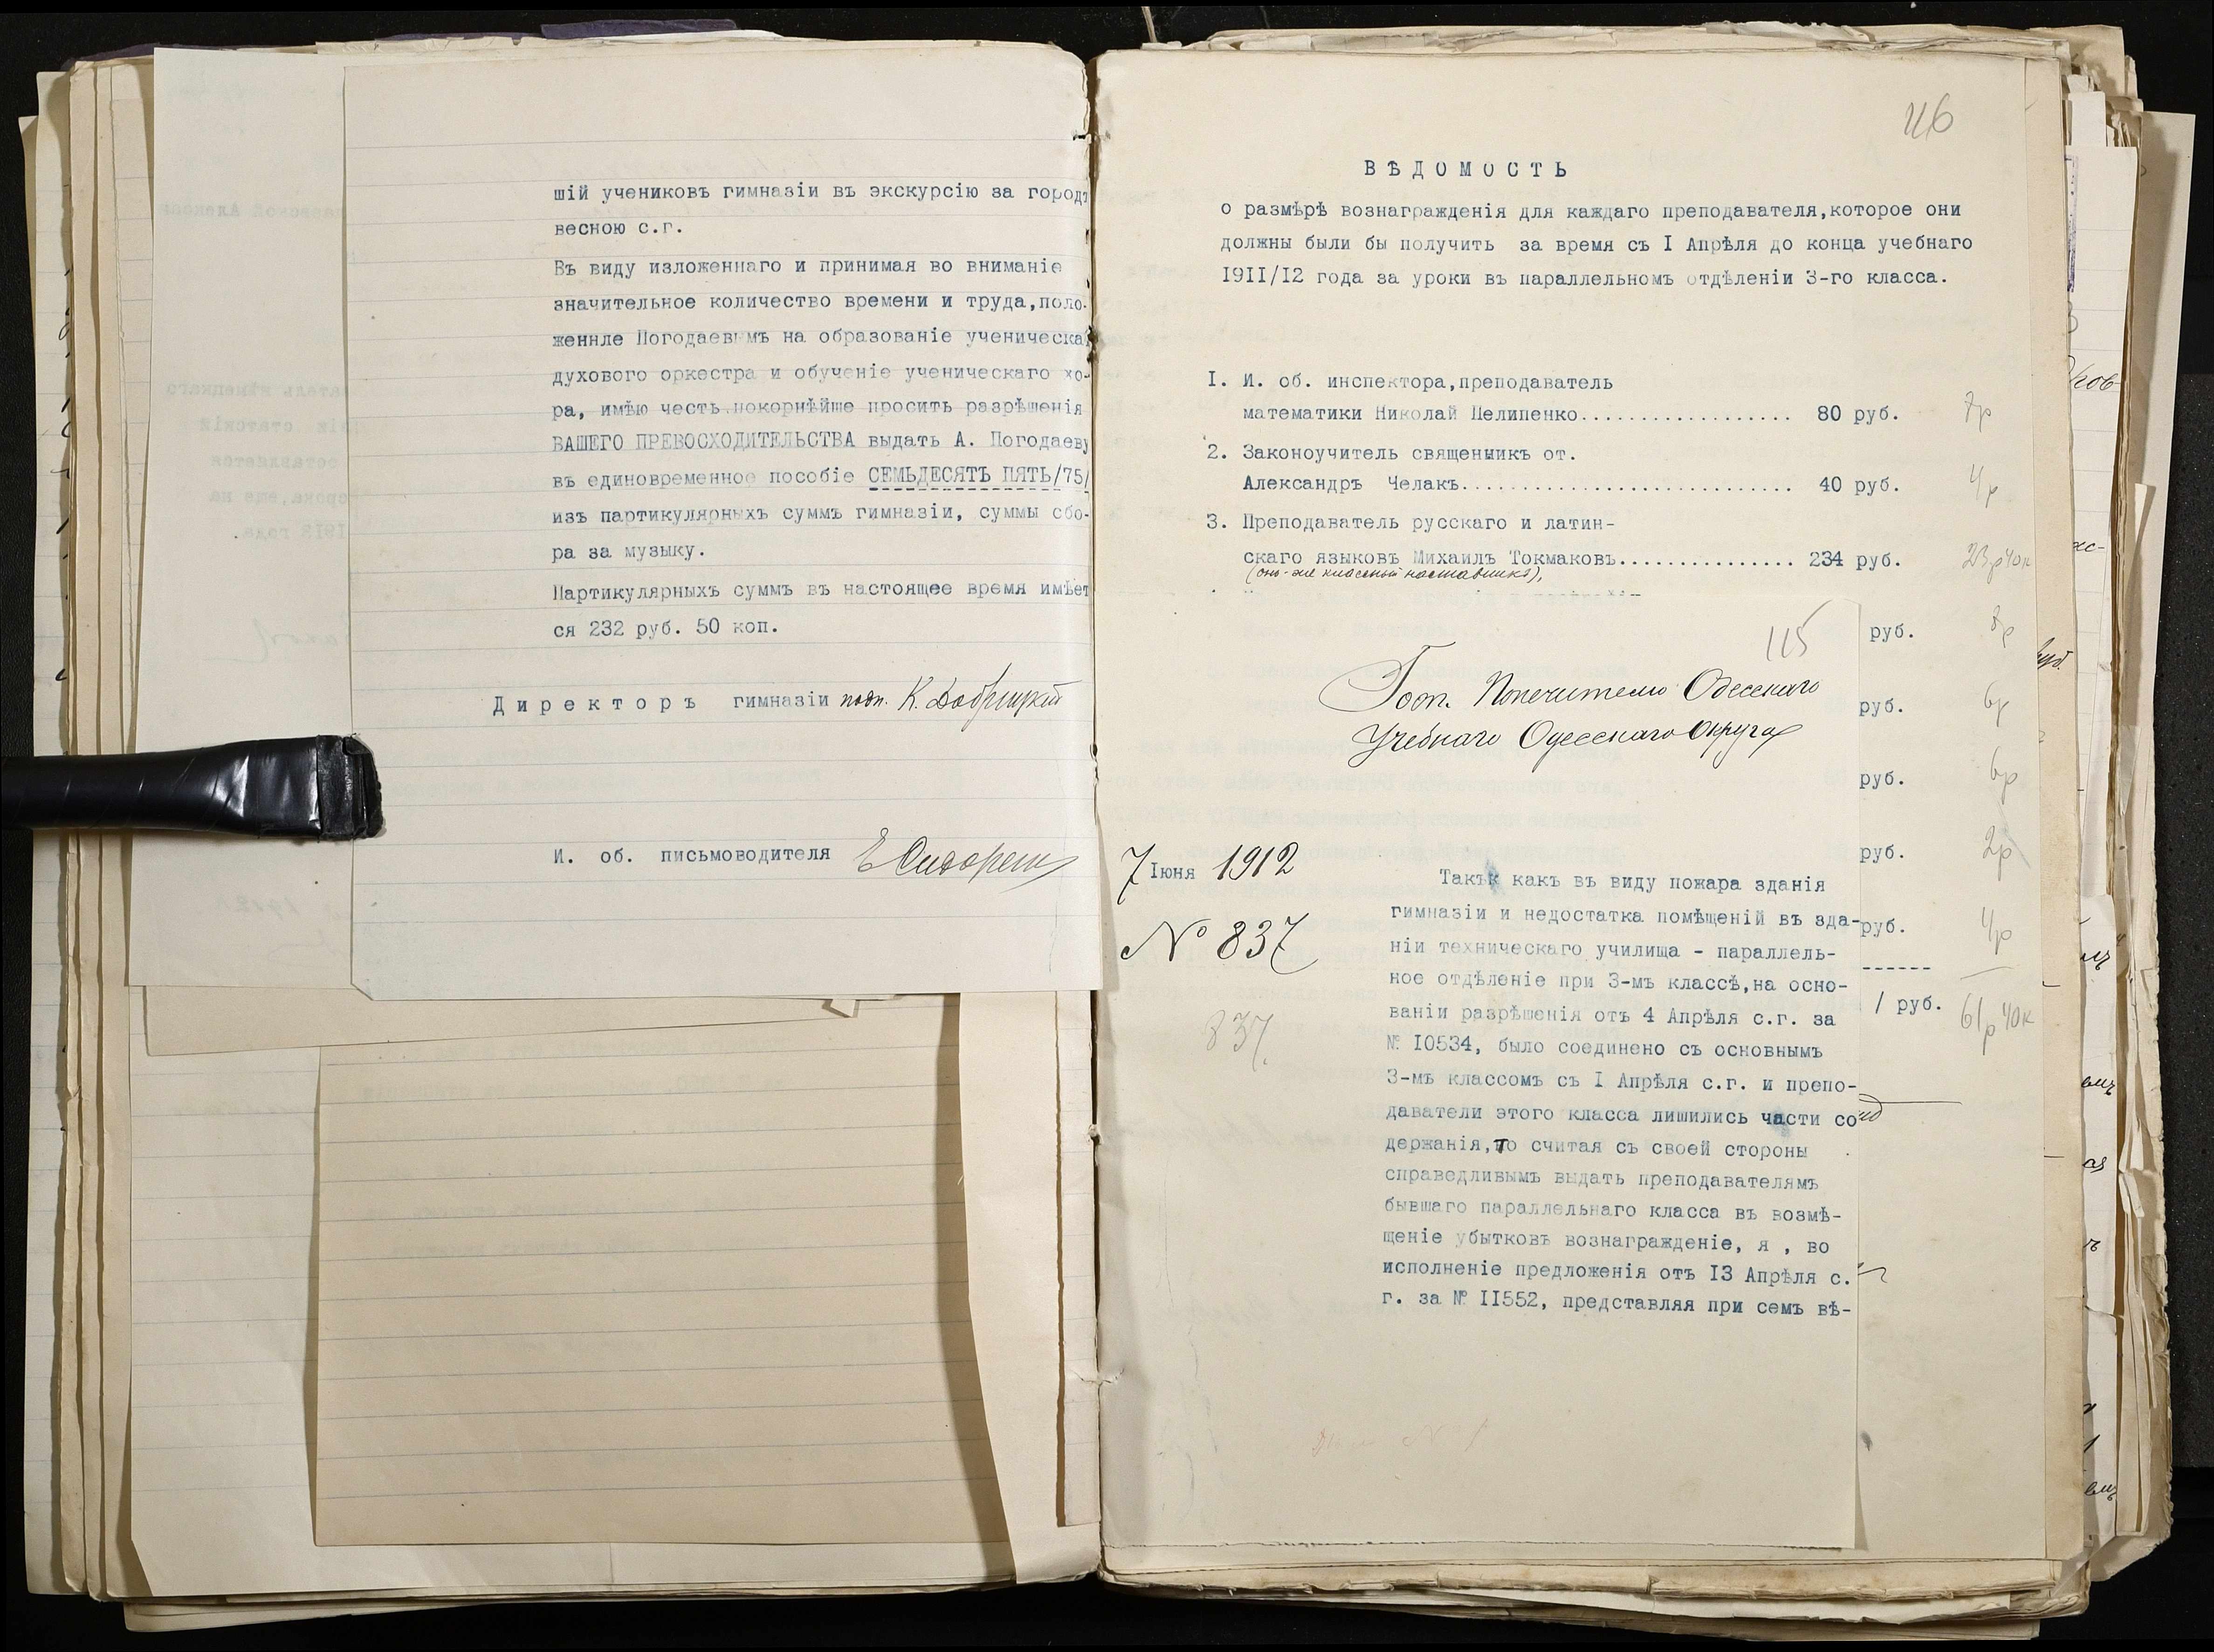 шій учениковъ гимназіи въ экскурсію за городъ
весною с.г.
Въ виду изложеннаго и принимая во вниманіе
значительное количество времени и труда,поло-
женнле Погодаевымъ на образованіе ученическа
духового оркестра и обученіе ученическаго хо-
ра, имѣю честь покорнѣйше просить разрѣшенія
ВАШЕГО ПРЕВОСХОДИТЕЛЬСТВА выдать А. Погодаеву
въ единовременное пособіе СЕМЬДЕСЯТЪ ПЯТЬ/75/
изъ партикулярныхъ суммъ гимназіи, суммы сбо-
ра за музыку.
Партикулярныхъ суммъ въ настоящее время имѣет
ся 232 руб. 50 коп.
Директоръ гимназіи подп.
И. об. письмоводителя
ВѢДОМОСТЬ
о размѣрѣ вознагражденія для каждаго преподавателя,которое они
должны были бы получить за время съ I Апрѣля до конца учебнаго
I9II/I2 года за уроки въ параллельномъ отдѣленіи 3-го класса.
I. И. об. инспектора,преподаватель
математики Николай Пелипенко.................. 80 руб. 7р
2. Законоучитель священникъ от.
Александръ Челакъ............................ 40 руб. 4р
3. Преподаватель русскаго и латин-
скаго языковъ Михаилъ Токмаковъ............... 234 руб. 23р40к
(онъ-же классный наставникъ),
руб.
руб. 6р
руб. 6р
руб. 2р
руб. 4р
/ руб. 61р40к
115
Госп. Попечителю Одесскаго
Учебнаго Одесскаго Округа
7 Іюня 1912
№ 837
837.
Такъ какъ въ виду пожара зданія
гимназіи и недостатка помѣщеній въ зда-
ніи техническаго училища - параллель-
ное отдѣленіе при 3-мъ классѣ,на осно-
ваніи разрѣшенія отъ 4 Апрѣля с.г. за
№ I0534, было соединено съ основнымъ
3-мъ классомъ съ I Апрѣля с.г. и препо-
даватели этого класса лишились части со
держанія,то считая съ своей стороны
справедливымъ выдать преподавателямъ
бывшаго параллельнаго класса въ возмѣ-
щеніе убытковъ вознагражденіе, я , во
исполненіе предложенія отъ I3 Апрѣля с.
г. за № II552, представляя при семъ вѣ-